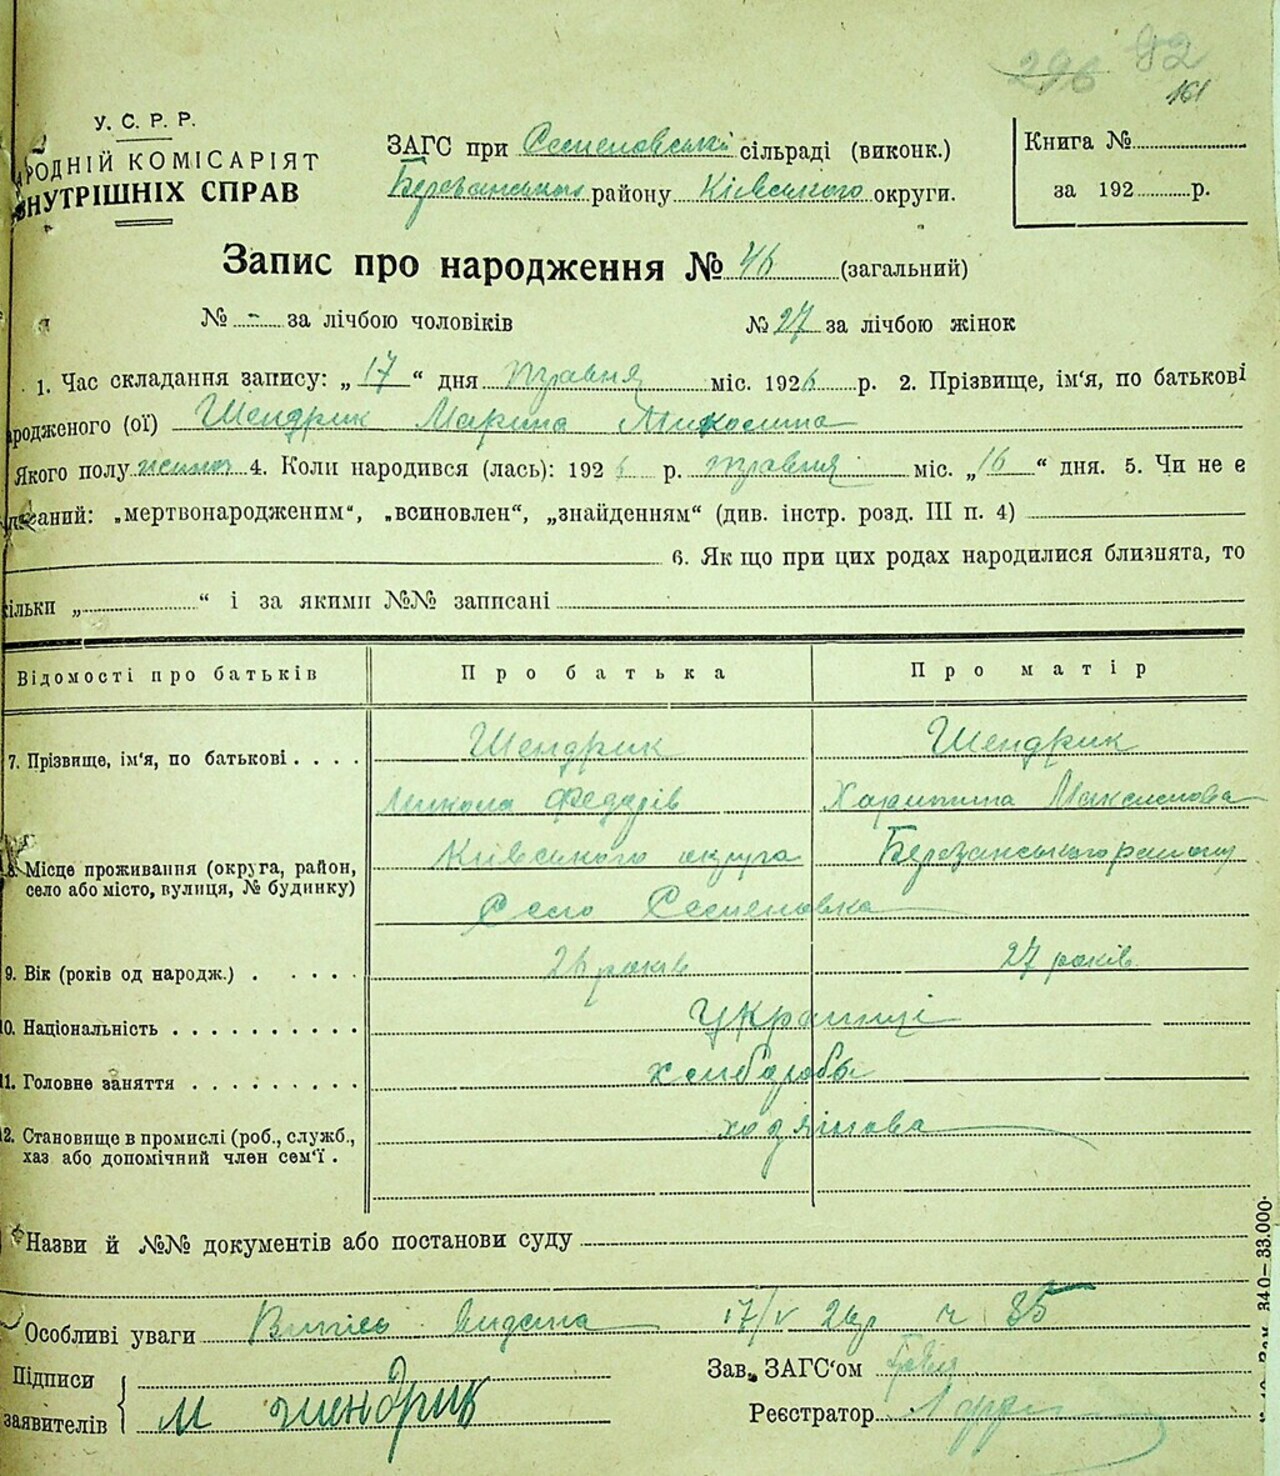 296 92
161
У. С. Р. Р.
РОДНІЙ КОМІСАРІЯТ
НУТРІШНІХ СПРАВ
ЗАГС при Семеновській сільраді (виконк.)
Березанського району Київського округи.
Книга №
за 192 р.
Запис про народження № 46 (загальний)
№ - за лічбою чоловіків № 27 за лічбою жінок
1. Час складання запису: „17“ дня травня міс. 1926 р. 2. Прізвище, ім'я, по батькові
родженого (ої) Шендрик Марина Миколина
Якого полу жіноч 4. Коли народився (лась): 1926 р. травня міс. „16“ дня. 5. Чи не є
писаний: „мертвонародженим“, „всиновлен“, „знайденням“ (див. інстр. розд. III п. 4)
6. Як що при цих родах народилися близнята, то
ільки „ “ і за якими №№ записані
Відомості про батьків Про батька Про матір
7. Прізвище, ім'я, по батькові . . . . Шендрик Шендрик
Микола Федорів Харитина Максимова
8. Місце проживання (округа, район, село або місто, вулиця, № будинку) Київського округа Березанського району
Село Семеновка
9. Вік (років од народж.) . . . . . 26 років 27 років
10. Національність . . . . . . . . . . Українці
11. Головне заняття . . . . . . . . . хлібороби
12. Становище в промислі (роб., служб.,
хаз або допомічний член сем'ї . хозяінова
Назви й №№ документів або постанови суду
Особливі уваги Витісь видана 17/V 26р ч 85
Підписи
заявителів М Шендрик
Зав. ЗАГС'ом
Реєстратор
340—33.000.